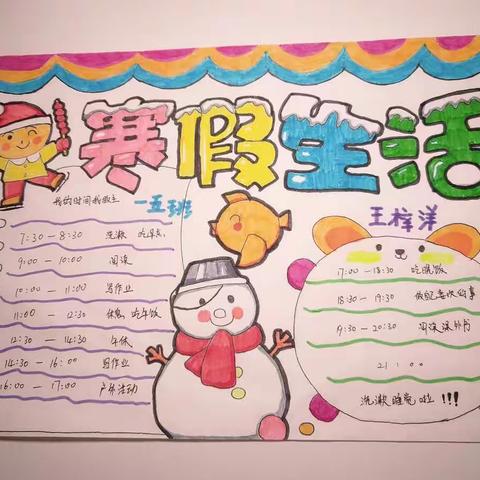 寒假生活
我的时间我做主
一五班
王梓洋
7:30 — 8:30 洗漱 吃早点
9:00 — 10:00 阅读
10:00 — 11:00 写作业
11:00 — 12:30 休息 吃午饭
12:30 — 14:30 午休
14:30 — 16:00 写作业
16:00 — 17:00 户外活动
17:00 — 18:30 吃晚饭
18:30 — 19:30 做自己喜欢的事
19:30 — 20:30 阅读课外书
21:00
洗漱睡觉啦!!!